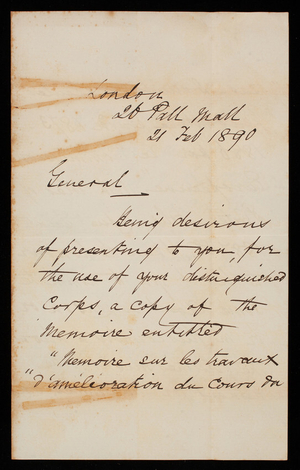 London
20 Pall Mall
21 Feb 1890
General
Being desirous
of presenting to you, for
the use of your distinguished
Corps, a copy of the
Memoire entitled
"Memoire sur les travaux
"d'amélioration du Cours du